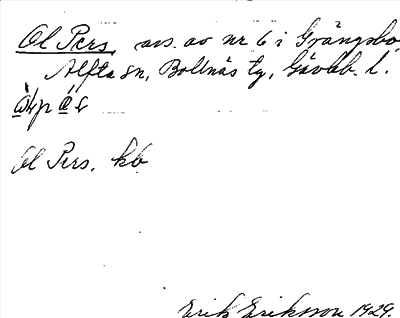 Ol Pers, avs. av nr 6 i Grängsbo,
Alfta sn, Bollnäs tg, Gävleb. l.
Ol Pers. kb
Erik Eriksson 1929.